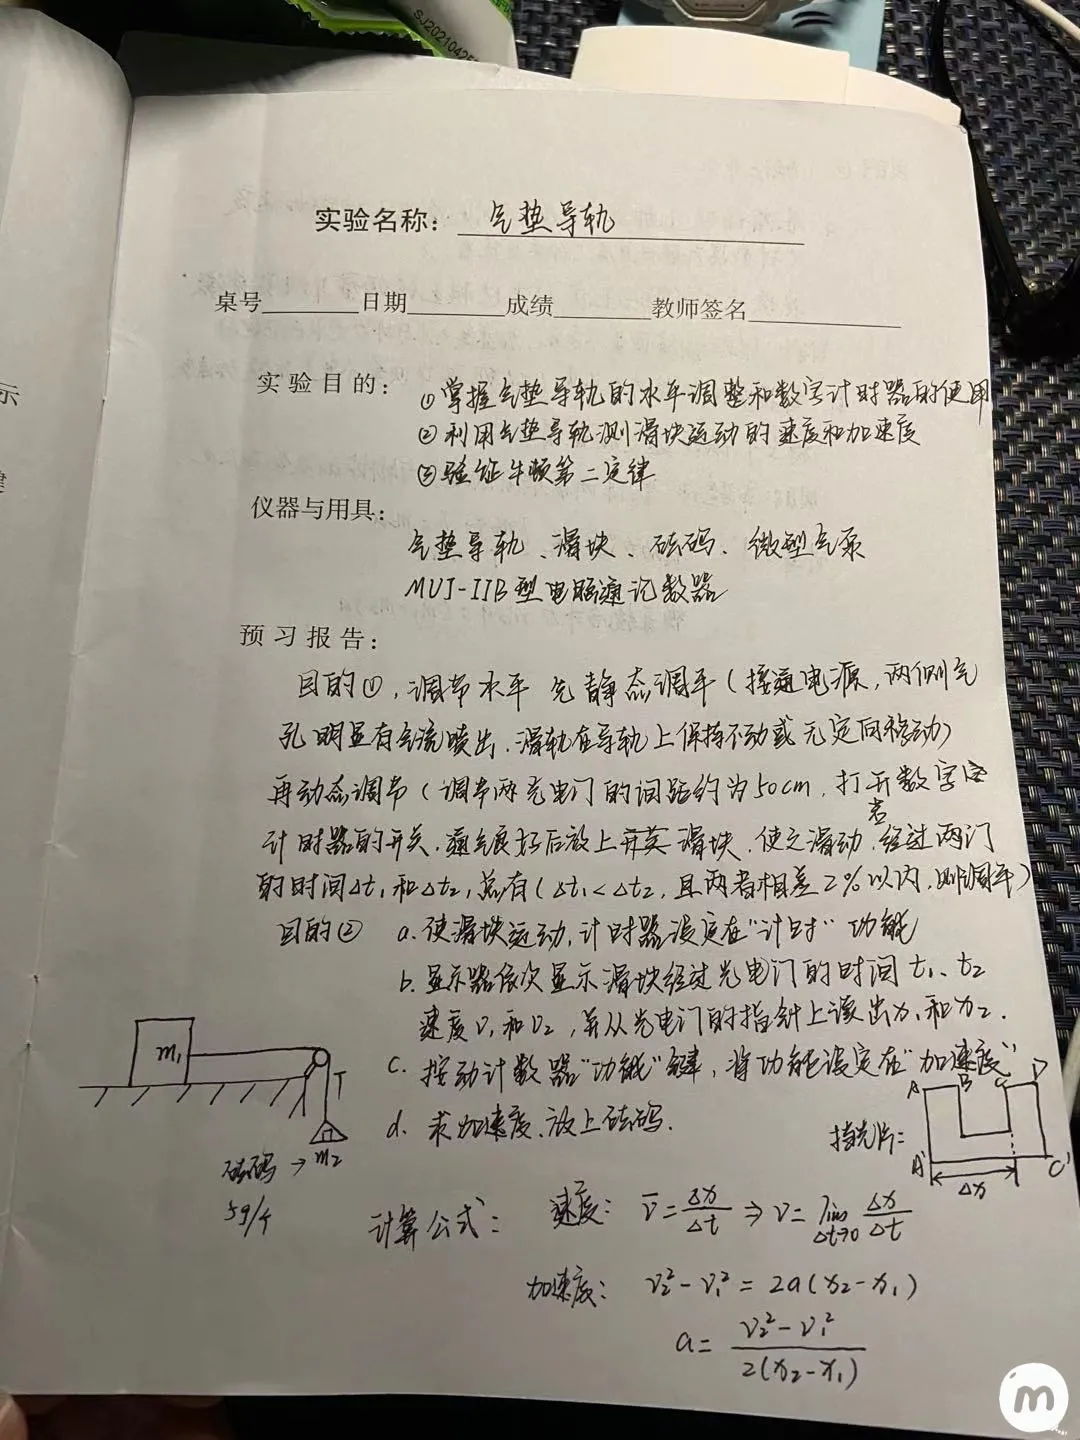 SJ2021042
实验名称: 气垫导轨
桌号 日期 成绩 教师签名
实验目的: ①掌握气垫导轨的水平调整和数字计时器的使用
②利用气垫导轨测滑块运动的速度和加速度
③验证牛顿第二定律
仪器与用具:
气垫导轨、滑块、砝码、微型气泵
MUJ-IIB型电脑通记数器
预习报告:
目的①,调节水平 先静态调平(接通电源,两侧气
孔明显有气流喷出,滑轨在导轨上保持不动或无定向移动)
再动态调节(调节两光电门的间距约为50cm,打开数字
计时器的开关,通气良好后放上滑块,使之滑动,若经过两门
的时间Δt₁和Δt₂,总有(Δt₁<Δt₂,且两者相差2%以内,则调平)
目的② a.使滑块运动,计时器设定在"计时"功能
b.显示器依次显示滑块经过光电门的时间t₁、t₂
速度v₁和v₂,并从光电门的指针上读出x₁和x₂.
c.按动计数器"功能"键,将功能设定在"加速度"
d.求加速度,放上砝码.
m₁
T
砝码→m₂
5g/个
挡光片:
A B C D
A' C'
Δx
计算公式: 速度: v̄=Δx/Δt ⇒ v=lim Δt→0 Δx/Δt
加速度: v₂²-v₁²=2a(x₂-x₁)
a=(v₂²-v₁²)/2(x₂-x₁)
示
m